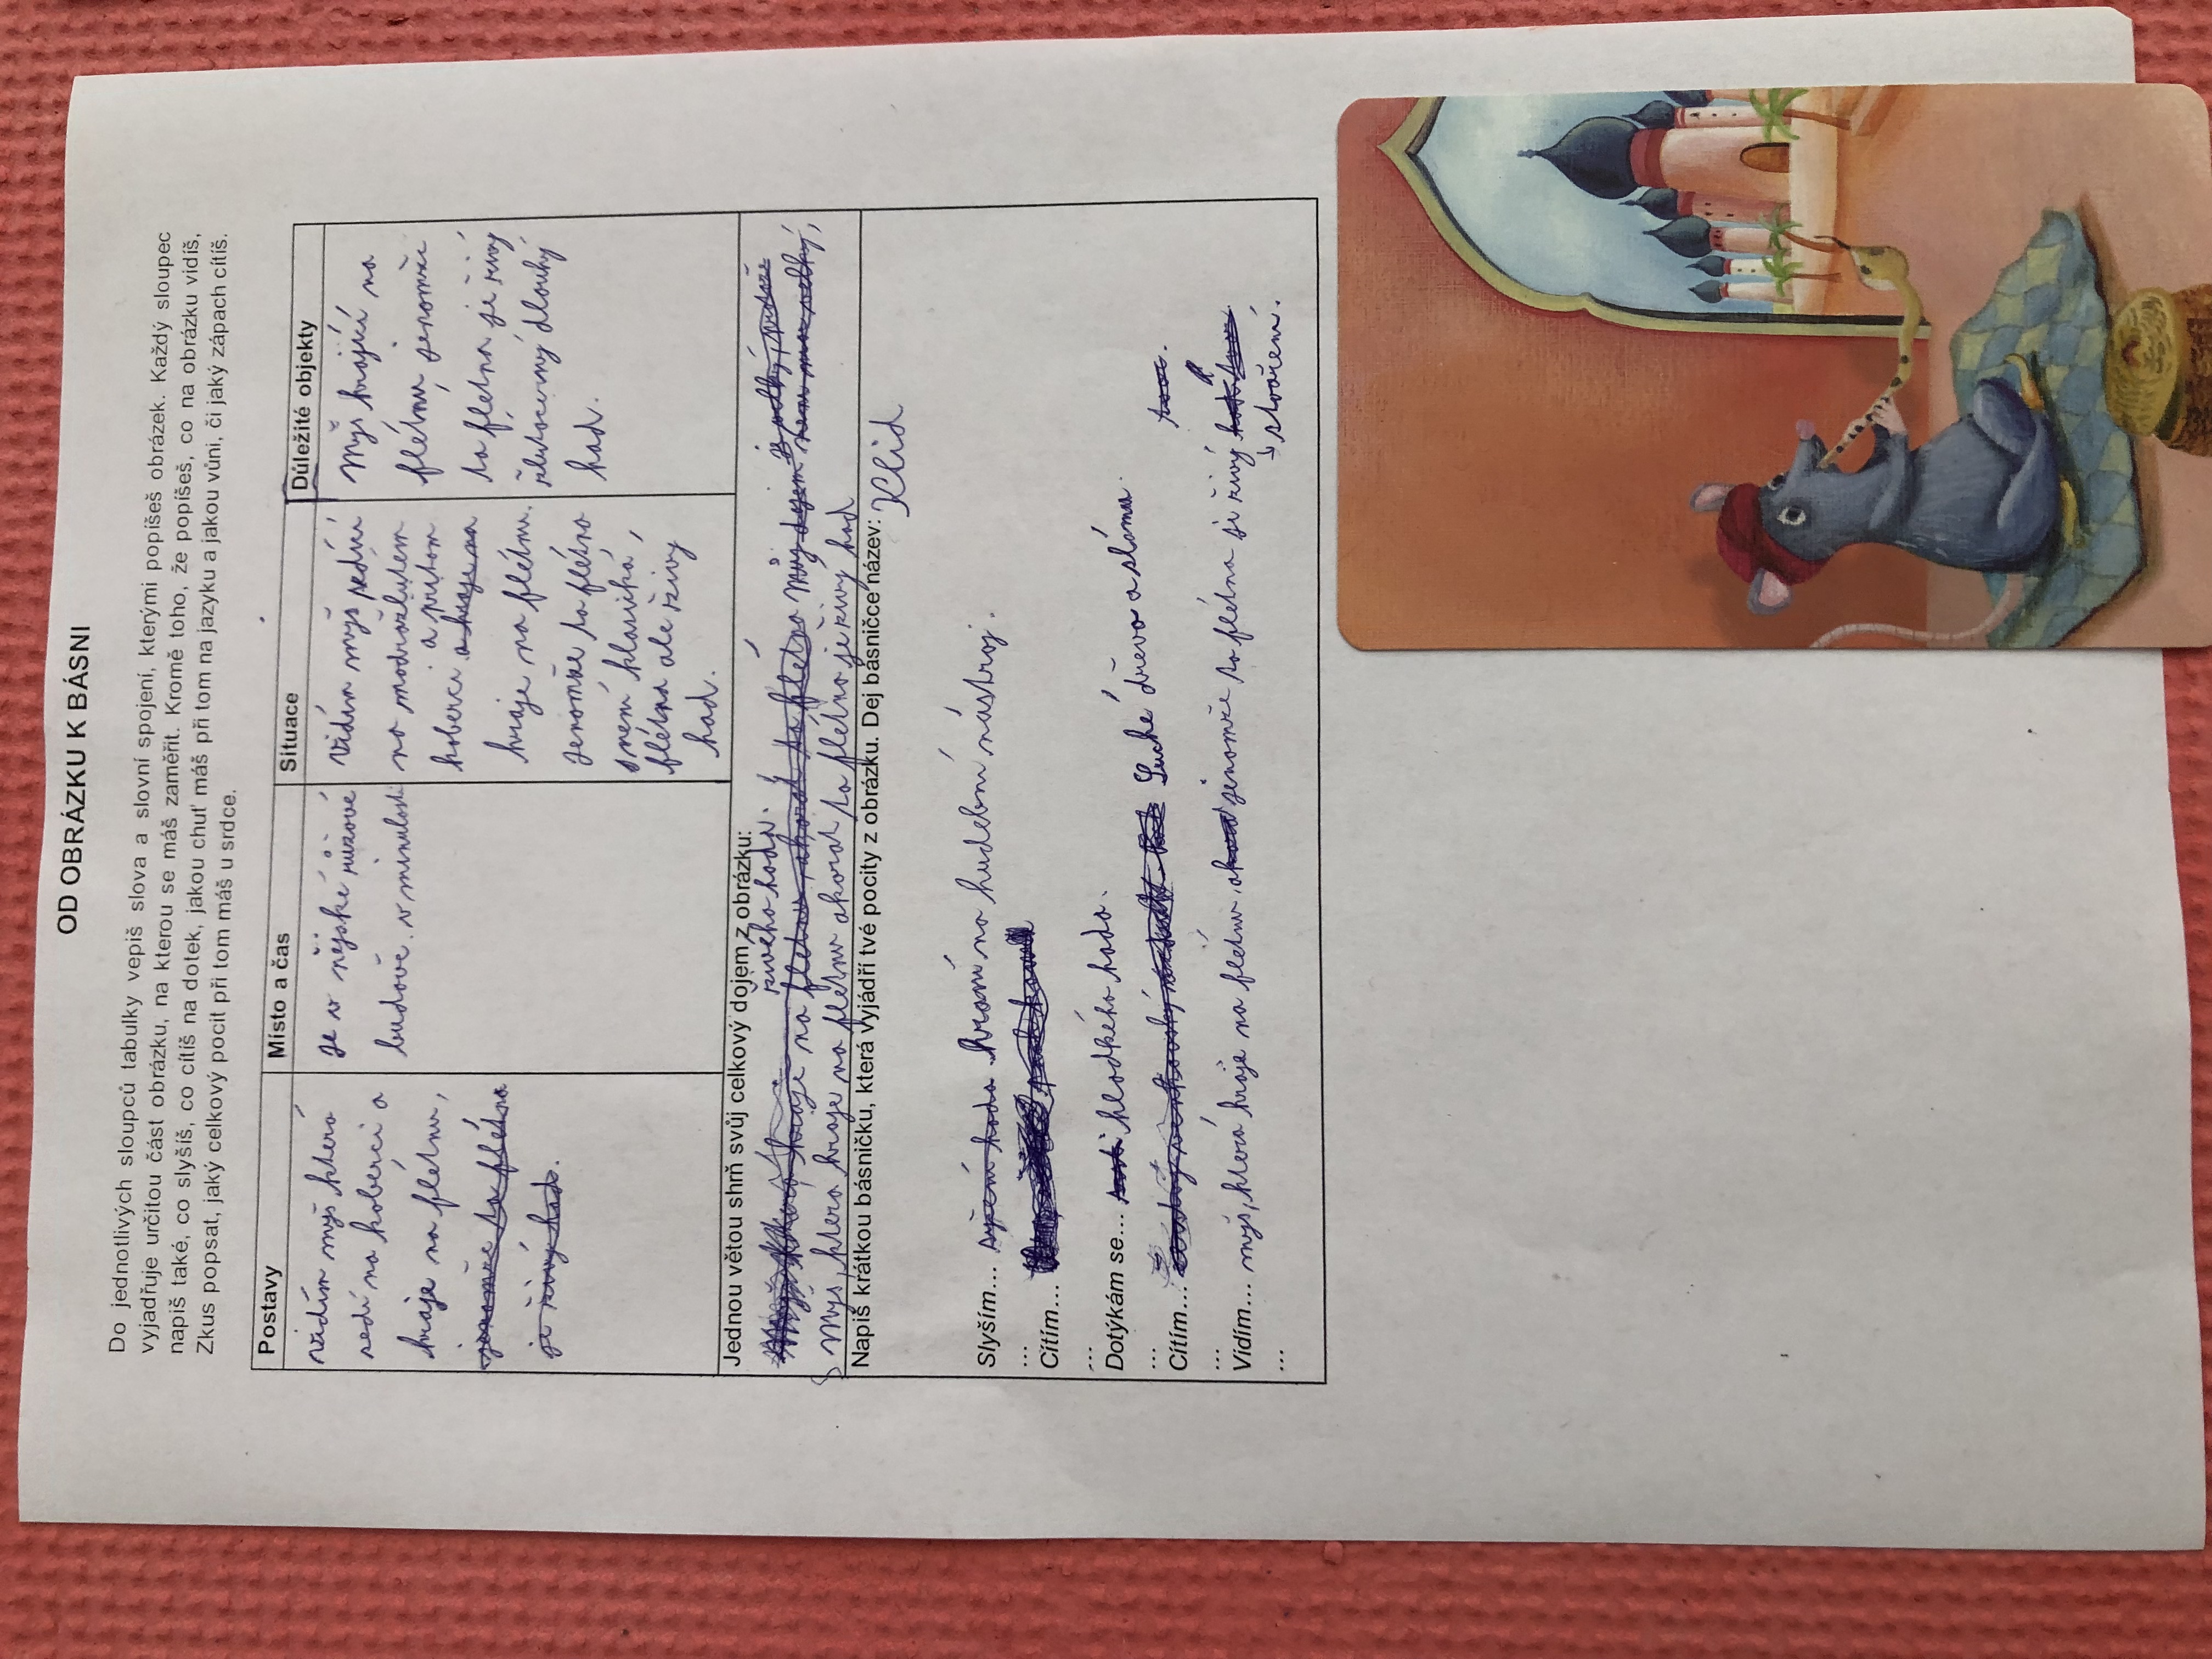 OD OBRÁZKU K BÁSNI
Do jednotlivých sloupců tabulky vepiš slova a slovní spojení, kterými popíšeš obrázek. Každý sloupec
vyjadřuje určitou část obrázku, na kterou se máš zaměřit. Kromě toho, že popíšeš, co na obrázku vidíš,
napiš také, co slyšíš, co cítíš na dotek, jakou chuť máš při tom na jazyku a jakou vůni, či jaký zápach cítíš.
Zkus popsat, jaký celkový pocit při tom máš u srdce.
Postavy
vidím myš která
sedí na koberci a
hraje na flétnu,
jenomže ta flétna
je živý had.
Místo a čas
je v nějaké růžové
budově v minulosti
Situace
vidím myš sedící
na modrožlutém
koberci a přitom
hraje na flétnu.
jenomže ta flétna
není klasická,
flétna ale živý
had.
Důležité objekty
Myš hrající na
flétnu, jenomže
ta flétna je živý
žlutočerný dlouhý
had.
Jednou větou shrň svůj celkový dojem z obrázku:
živého hada.
Myš, která hraje na flétnu akorát ta flétna je živý had
Napiš krátkou básničku, která vyjádří tvé pocity z obrázku. Dej básničce název: Klid
Slyším... hraní na hudební nástroj.
...
Cítím...
...
Dotýkám se... hladkého hada.
...
Cítím... Suché dřevo a sláma.
...
Vidím... myš, která hraje na flétnu, jenomže ta flétna je živý
...
stvoření.